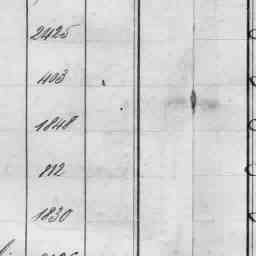 2425
403
1848
812
1830